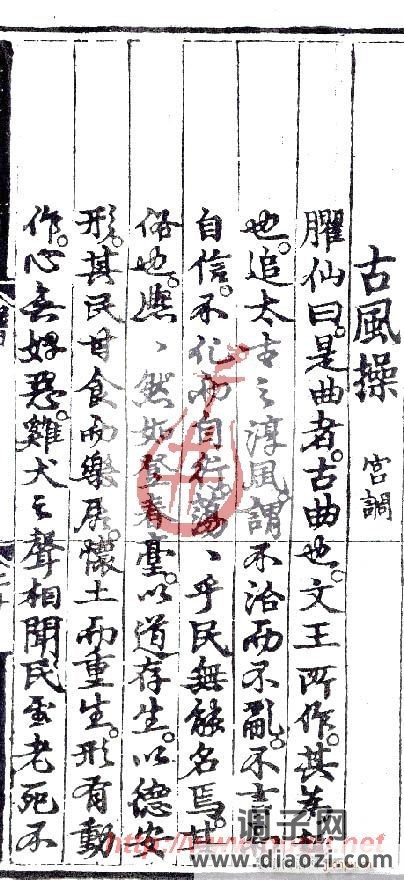 古風操 宮調
臞仙曰。是曲者。古曲也。文王所作。其
也。追太古之淳風。謂不治而不亂。不言
自信。不化而自行。蕩、乎民無能名焉。其
俗也。熙、然如登春臺。以道存生。以德安
形。其民甘食而樂居。懷土而重生。形有動
作。心無好惡。雞犬之聲相聞民至老死不
調子网
www.diaozi.com